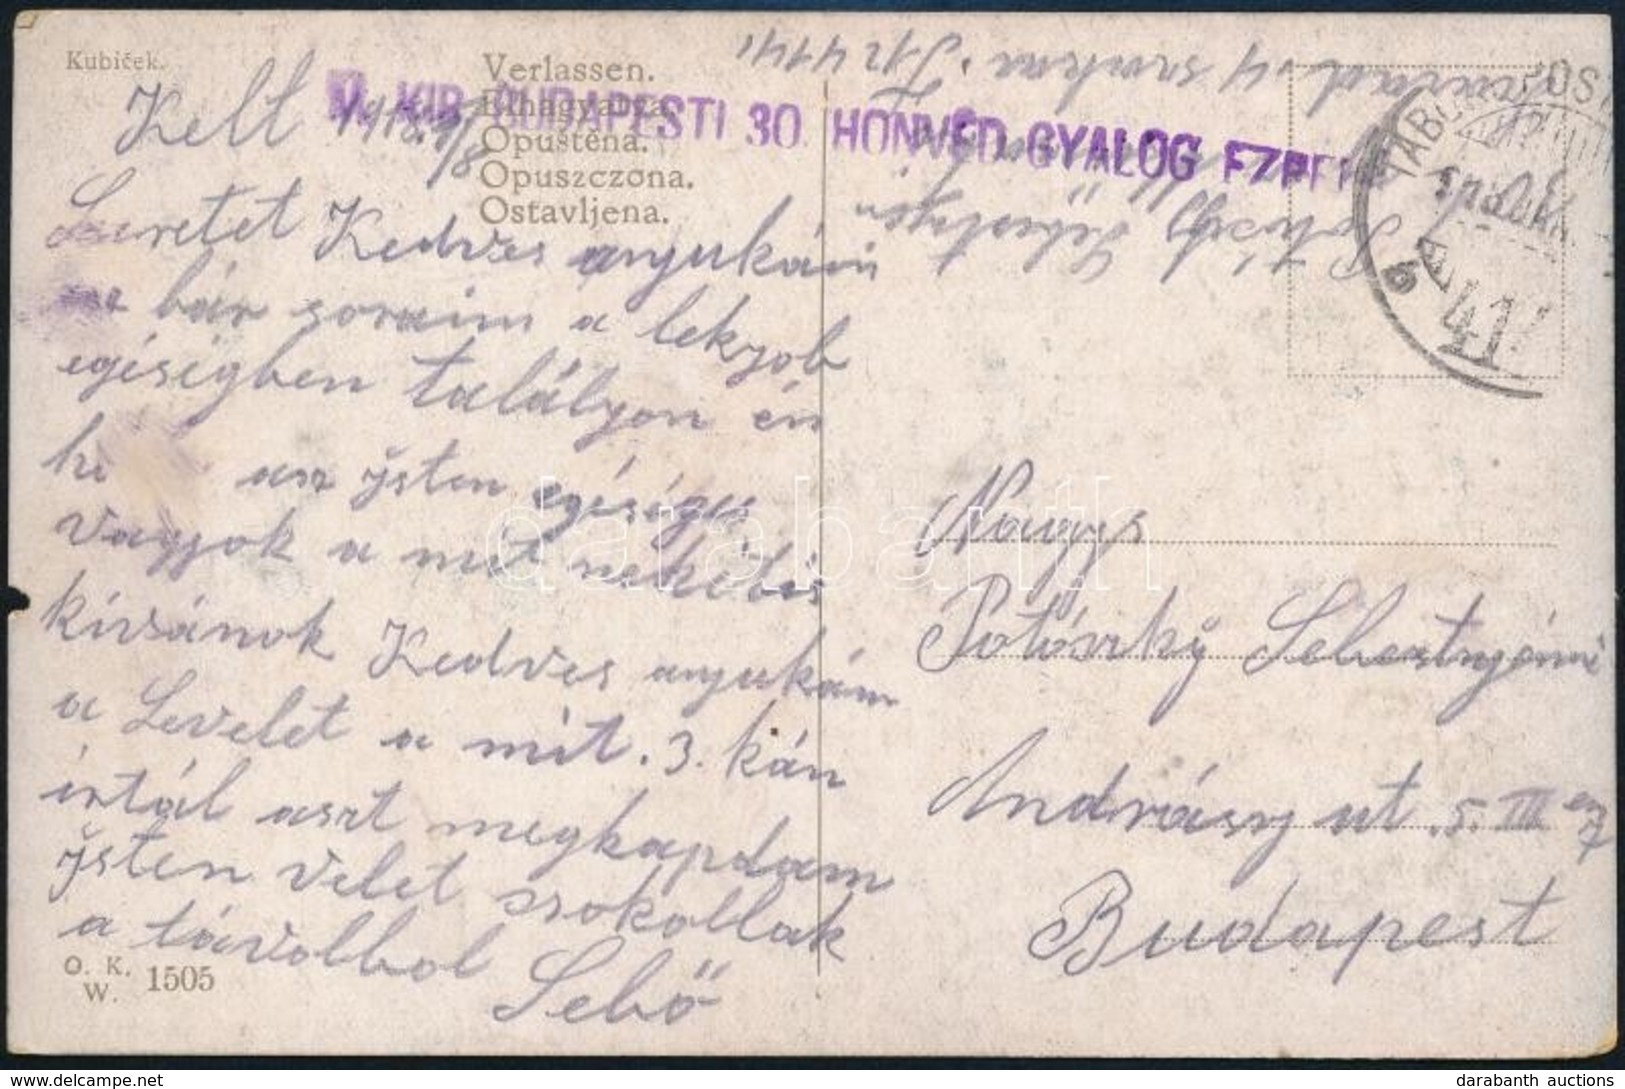 Kubiček.
Verlassen.
Elhagyatva.
Opuštěna.
Opuszczona.
Ostavljena.
M. KIR. BUDAPESTI 30. HONVÉD GYALOG EZRED
TÁBORI POSTA
41
Kelt 1918 9/8
Szeretet Kedves anyukám
bár soraim a lekjob
egéségben talályon én
hi az Jsten egéséges
vagyok a mit nekétis
kívánok Kedves anyukám
a Levelet a mit .3. kán
írtál aszt megkaptam
Jsten Velet szokollak
a távolbol Sebő
század .4 szakasz
Nagys
Potóczky Sebestyénné
Andrássy ut .5. III em 7
Budapest
O. K. W. 1505
darabanth
darabanth auctions